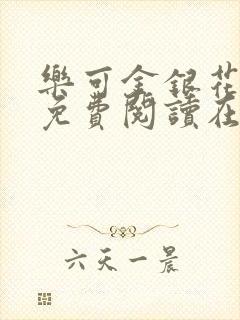 樂可金銀花
免費閱讀在
六天一晨